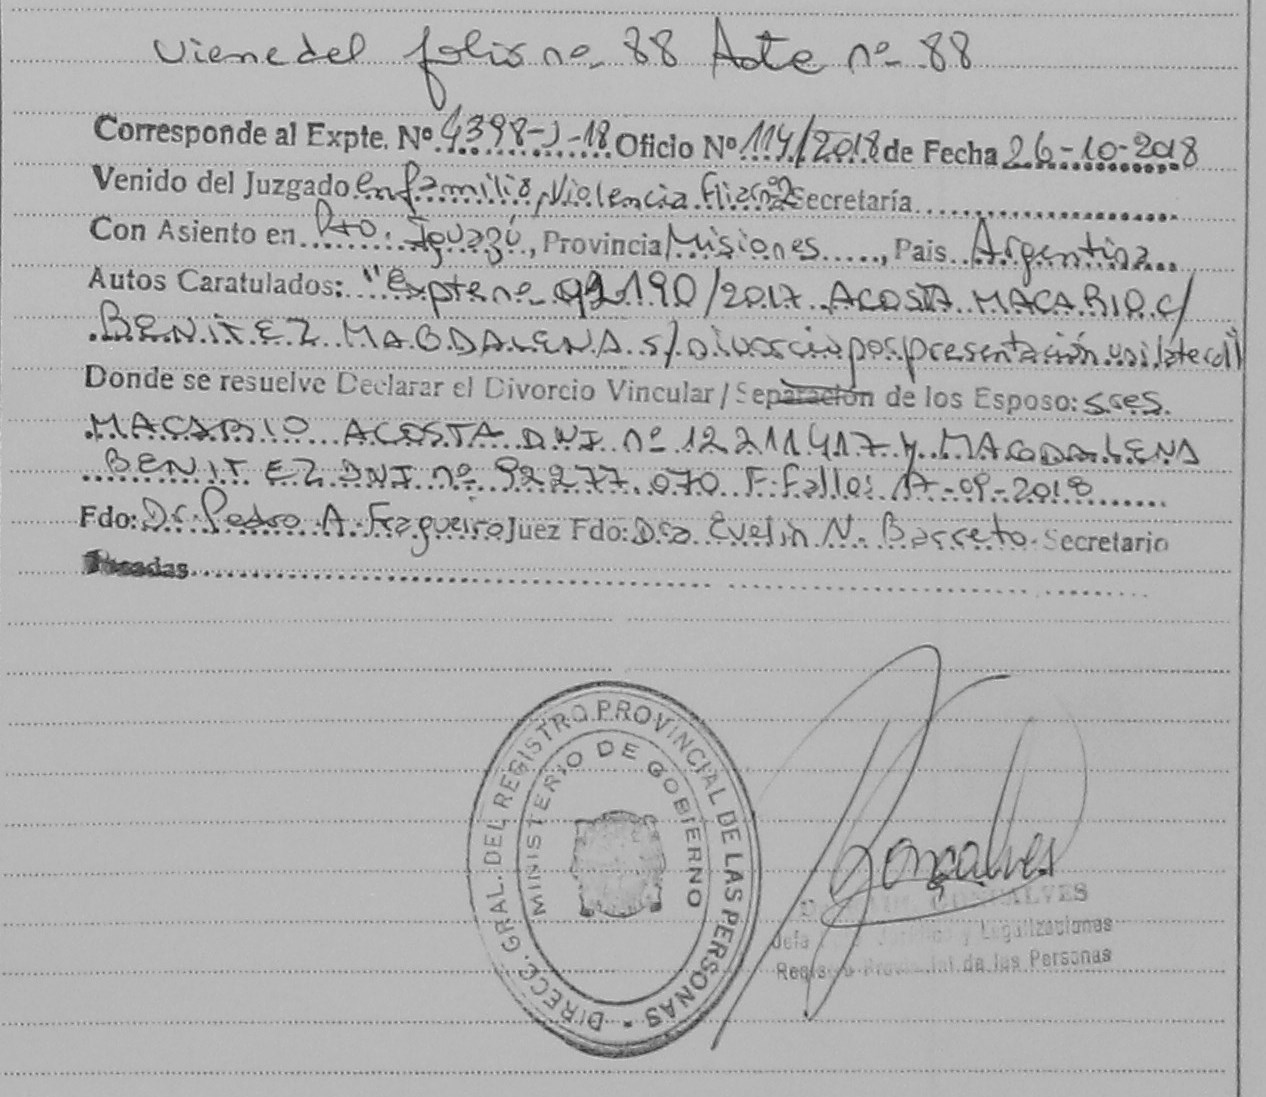 Viene del folio nº 88 Acta nº 88
Corresponde al Expte. Nº 4398-J-18 Oficio Nº 114/2018 de Fecha 26-10-2018
Venido del Juzgado en familia y Violencia Secretaría
Con Asiento en Pto. Iguazú, Provincia Misiones, Pais Argentina
Autos Caratulados: "Expte nº 92190/2017 ACOSTA MACARIO c/
BENITEZ MAGDALENA s/ divorcio por presentación unilateral"
Donde se resuelve Declarar el Divorcio Vincular / Separación de los Esposo: sres.
MACARIO ACOSTA DNI nº 12211417 y MAGDALENA
BENITEZ DNI nº 92277.070 F. Fallo: 17-09-2018
Fdo: Dr. Pedro A. Fragueiro Juez Fdo: Dra Evelin N. Barreto Secretario
Posadas
DIRECC. GRAL. DEL REGISTRO PROVINCIAL DE LAS PERSONAS
MINISTERIO DE GOBIERNO
Gonçalves
GONÇALVES
Jefa y Legalizaciones
Registro Provincial de las Personas